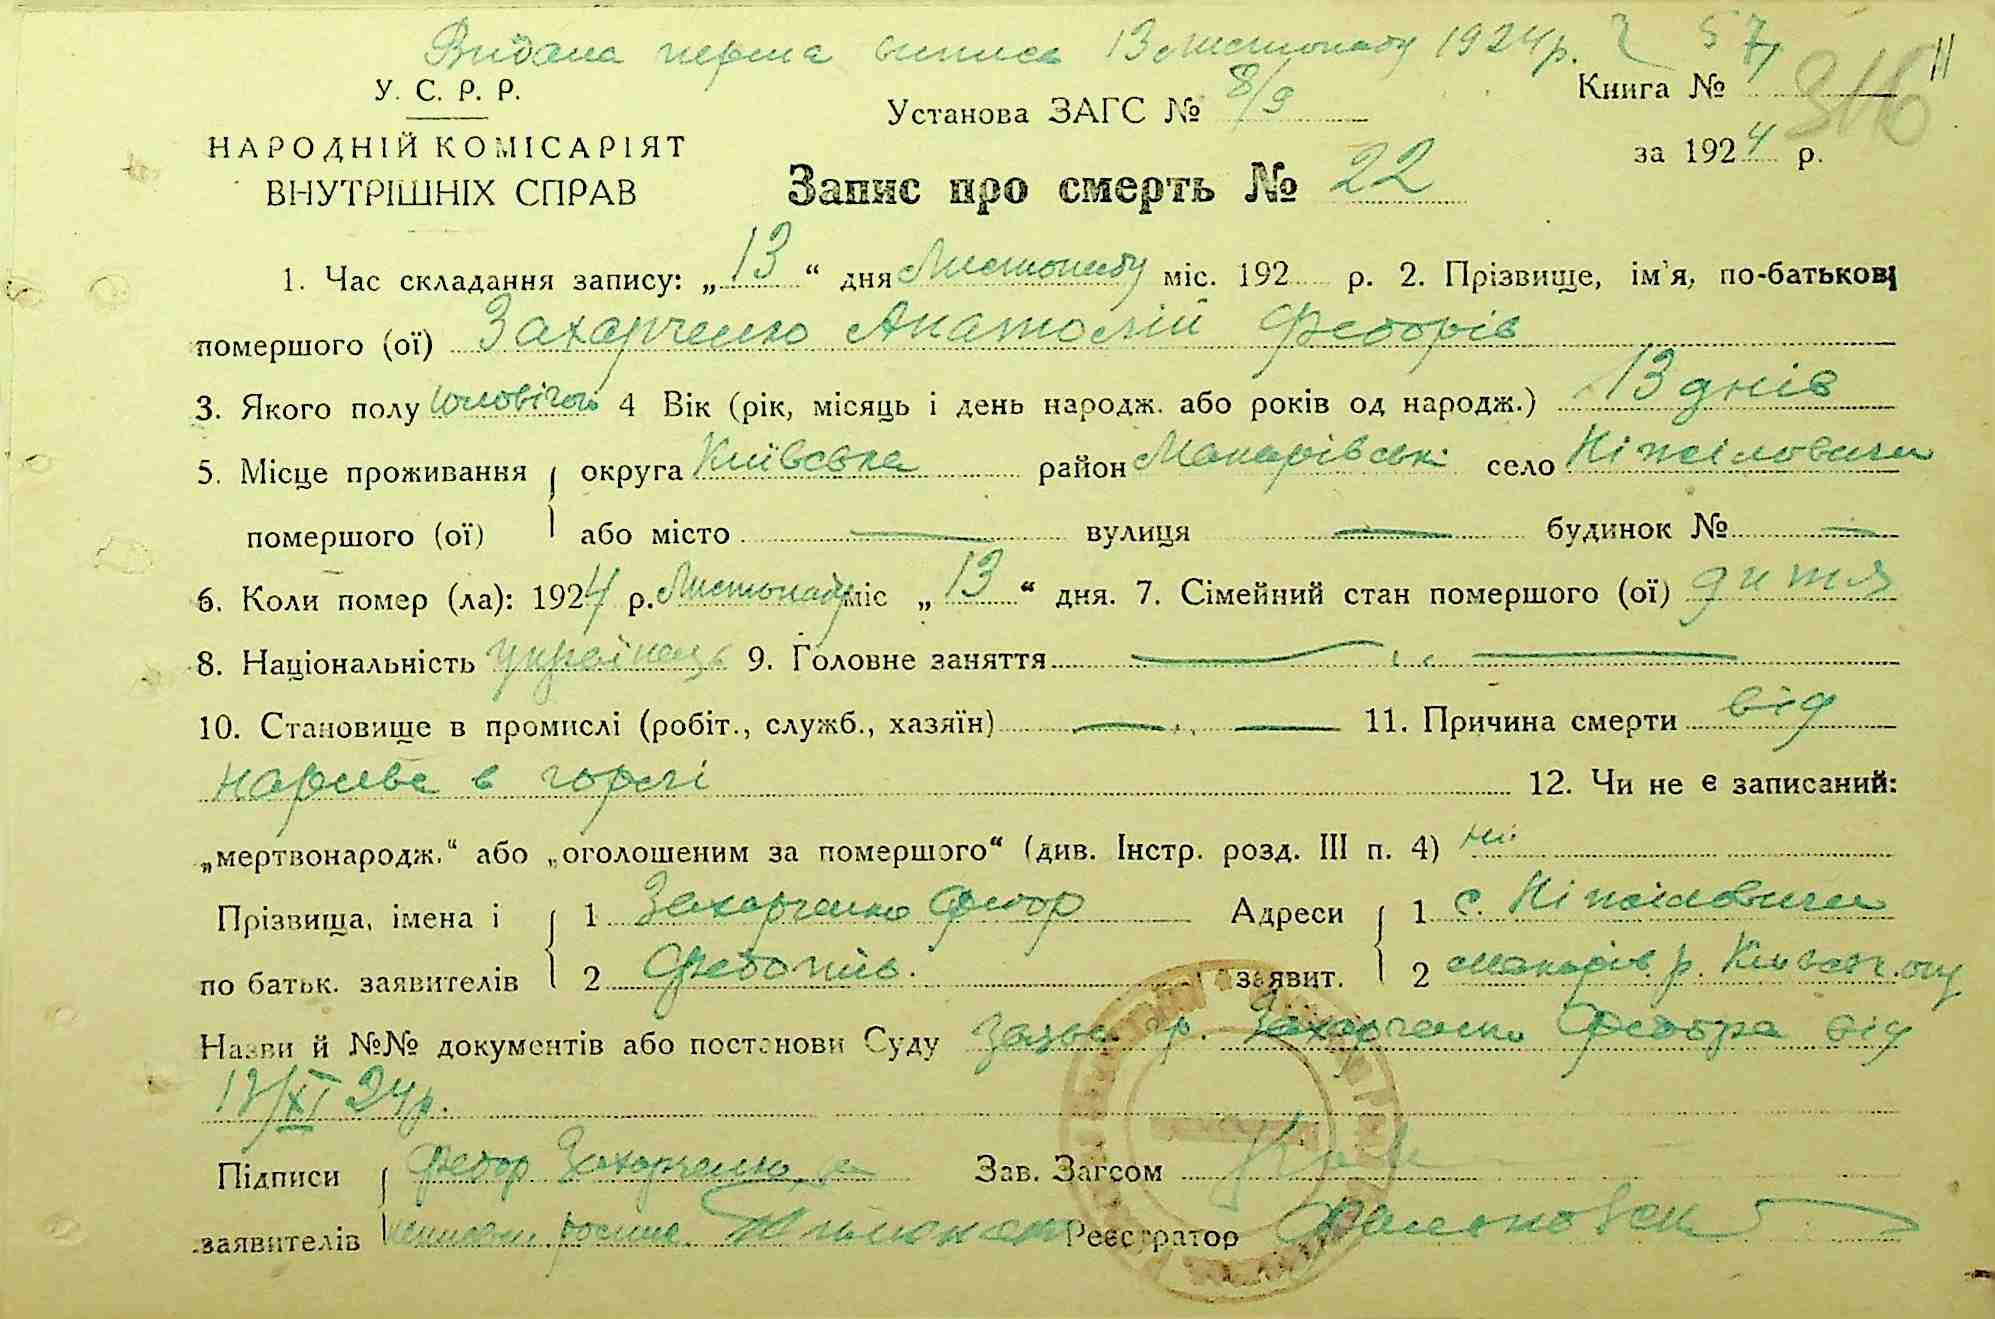 Видана перша виписа 13 листопаду 1924 р. 57
У. С. Р. Р.
НАРОДНІЙ КОМІСАРІЯТ
ВНУТРІШНІХ СПРАВ
Установа ЗАГС № 8/9
Книга №
за 1924 р.
Запис про смерть № 22
1. Час складання запису: „13“ дня Листопаду міс. 192 р. 2. Прізвище, ім'я, по-батькові
помершого (ої) Захарченко Анатолій Федорів
3. Якого полу чоловічого 4 Вік (рік, місяць і день народж. або років од народж.) 13 днів
5. Місце проживання округа Київська район Макарівськ село Ніжиловичи
помершого (ої) або місто — вулиця — будинок № —
6. Коли помер (ла): 1924 р. Листопаду міс „13“ дня. 7. Сімейний стан помершого (ої) дитя
8. Національність українець 9. Головне заняття — „ —
10. Становище в промислі (робіт., служб., хазяїн) — „ — 11. Причина смерти від
нарива в горлі 12. Чи не є записаний:
„мертвонародж.“ або „оголошеним за помершого“ (див. Інстр. розд. III п. 4) ні
Прізвища, імена і 1 Захарченко Федор Адреси 1 с. Ніжиловичи
по батьк. заявителів 2 заявит. 2 Макарів. р. Київськ. окр
Назви й №№ документів або постанови Суду Заява гр. Захарченка Федора від
13/XI 24 р.
Підписи Федор Захарченко, а Зав. Загсом
заявителів Реєстратор